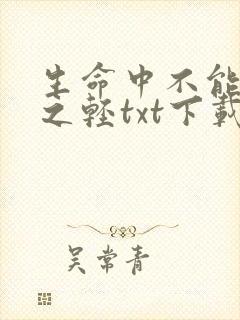 生命中不能
之轻txt下载
吴常青